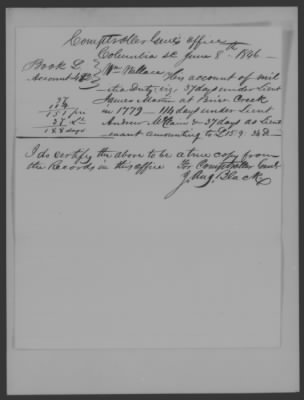 Comptroller Genl's office
Columbia SC June 8th 1846
Book L
Account 482
Wm Wallace, His account of mil
itia Duty viz; 37 days under Lieut
James Martin at Briar Creek
in 1779 114 days under Lieut
Andrew McClain & 37 days as Lieut
enant amounting to £159
37
114
151 pri
37 Lt
188 days
I do certify the above to be a true copy from
the Records in this office For Comptroller Genl
J. Aug. Black